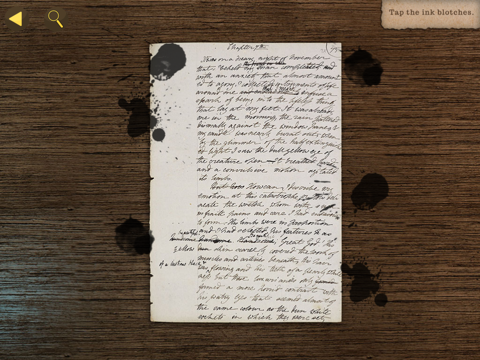 Tap the ink blotches.
Chapter 7th
It was on a dreary night of November
that I beheld my man completed; and
with an anxiety that almost amount
ed to agony, I collected instruments of life
around me
spark of being into the lifeless thing
that lay at my feet. It was already
one in the morning, the rain pattered
dismally against the window panes, &
my candle was nearly burnt out, when
by the glimmer of the half extinguish
ed light I saw the dull yellow eye of
the creature open. It breathed hard,
and a convulsive motion agitated
its limbs.
But how How can I describe my
emotion at this catastrophe; or how deli
neate the wretch whom with such
infinite pains and care I had endeavoured
to form. His limbs were in proportion
and I had selected his features as
handsome Handsome, Great God! His
yellow skin scarcely covered the work of
muscles and arteries beneath; his hair
of a lustrous black &
was flowing and his teeth of a pearly white
ness but these luxuriances only
formed a more horrid contrast with
his watry eyes that seemed almost of
the same colour as the dun white
sockets in which they were set,